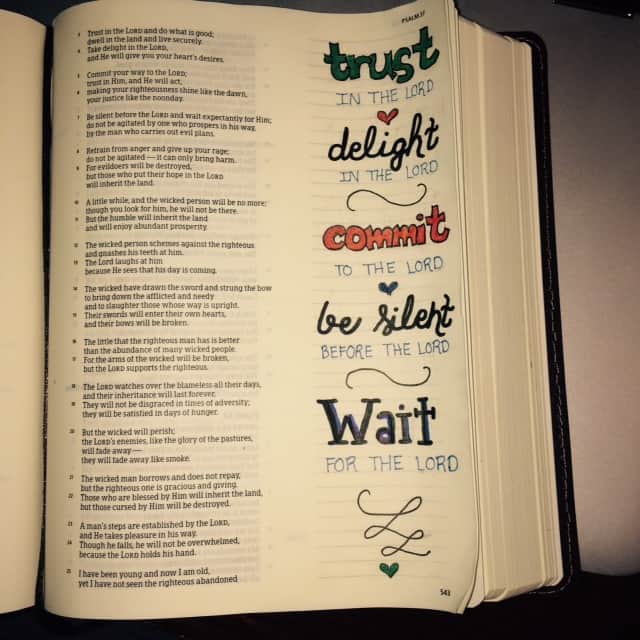 PSALM 37
3 Trust in the LORD and do what is good;
dwell in the land and live securely.
4 Take delight in the LORD,
and He will give you your heart's desires.
5 Commit your way to the LORD;
trust in Him, and He will act,
6 making your righteousness shine like the dawn,
your justice like the noonday.
7 Be silent before the LORD and wait expectantly for Him;
do not be agitated by one who prospers in his way,
by the man who carries out evil plans.
8 Refrain from anger and give up your rage;
do not be agitated — it can only bring harm.
9 For evildoers will be destroyed,
but those who put their hope in the LORD
will inherit the land.
10 A little while, and the wicked person will be no more;
though you look for him, he will not be there.
11 But the humble will inherit the land
and will enjoy abundant prosperity.
12 The wicked person schemes against the righteous
and gnashes his teeth at him.
13 The Lord laughs at him
because He sees that his day is coming.
14 The wicked have drawn the sword and strung the bow
to bring down the afflicted and needy
and to slaughter those whose way is upright.
15 Their swords will enter their own hearts,
and their bows will be broken.
16 The little that the righteous man has is better
than the abundance of many wicked people.
17 For the arms of the wicked will be broken,
but the LORD supports the righteous.
18 The LORD watches over the blameless all their days,
and their inheritance will last forever.
19 They will not be disgraced in times of adversity;
they will be satisfied in days of hunger.
20 But the wicked will perish;
the LORD's enemies, like the glory of the pastures,
will fade away —
they will fade away like smoke.
21 The wicked man borrows and does not repay,
but the righteous one is gracious and giving.
22 Those who are blessed by Him will inherit the land,
but those cursed by Him will be destroyed.
23 A man's steps are established by the LORD,
and He takes pleasure in his way.
24 Though he falls, he will not be overwhelmed,
because the LORD holds his hand.
25 I have been young and now I am old,
yet I have not seen the righteous abandoned
trust
IN THE LORD
delight
IN THE LORD
commit
TO THE LORD
be silent
BEFORE THE LORD
Wait
FOR THE LORD
543